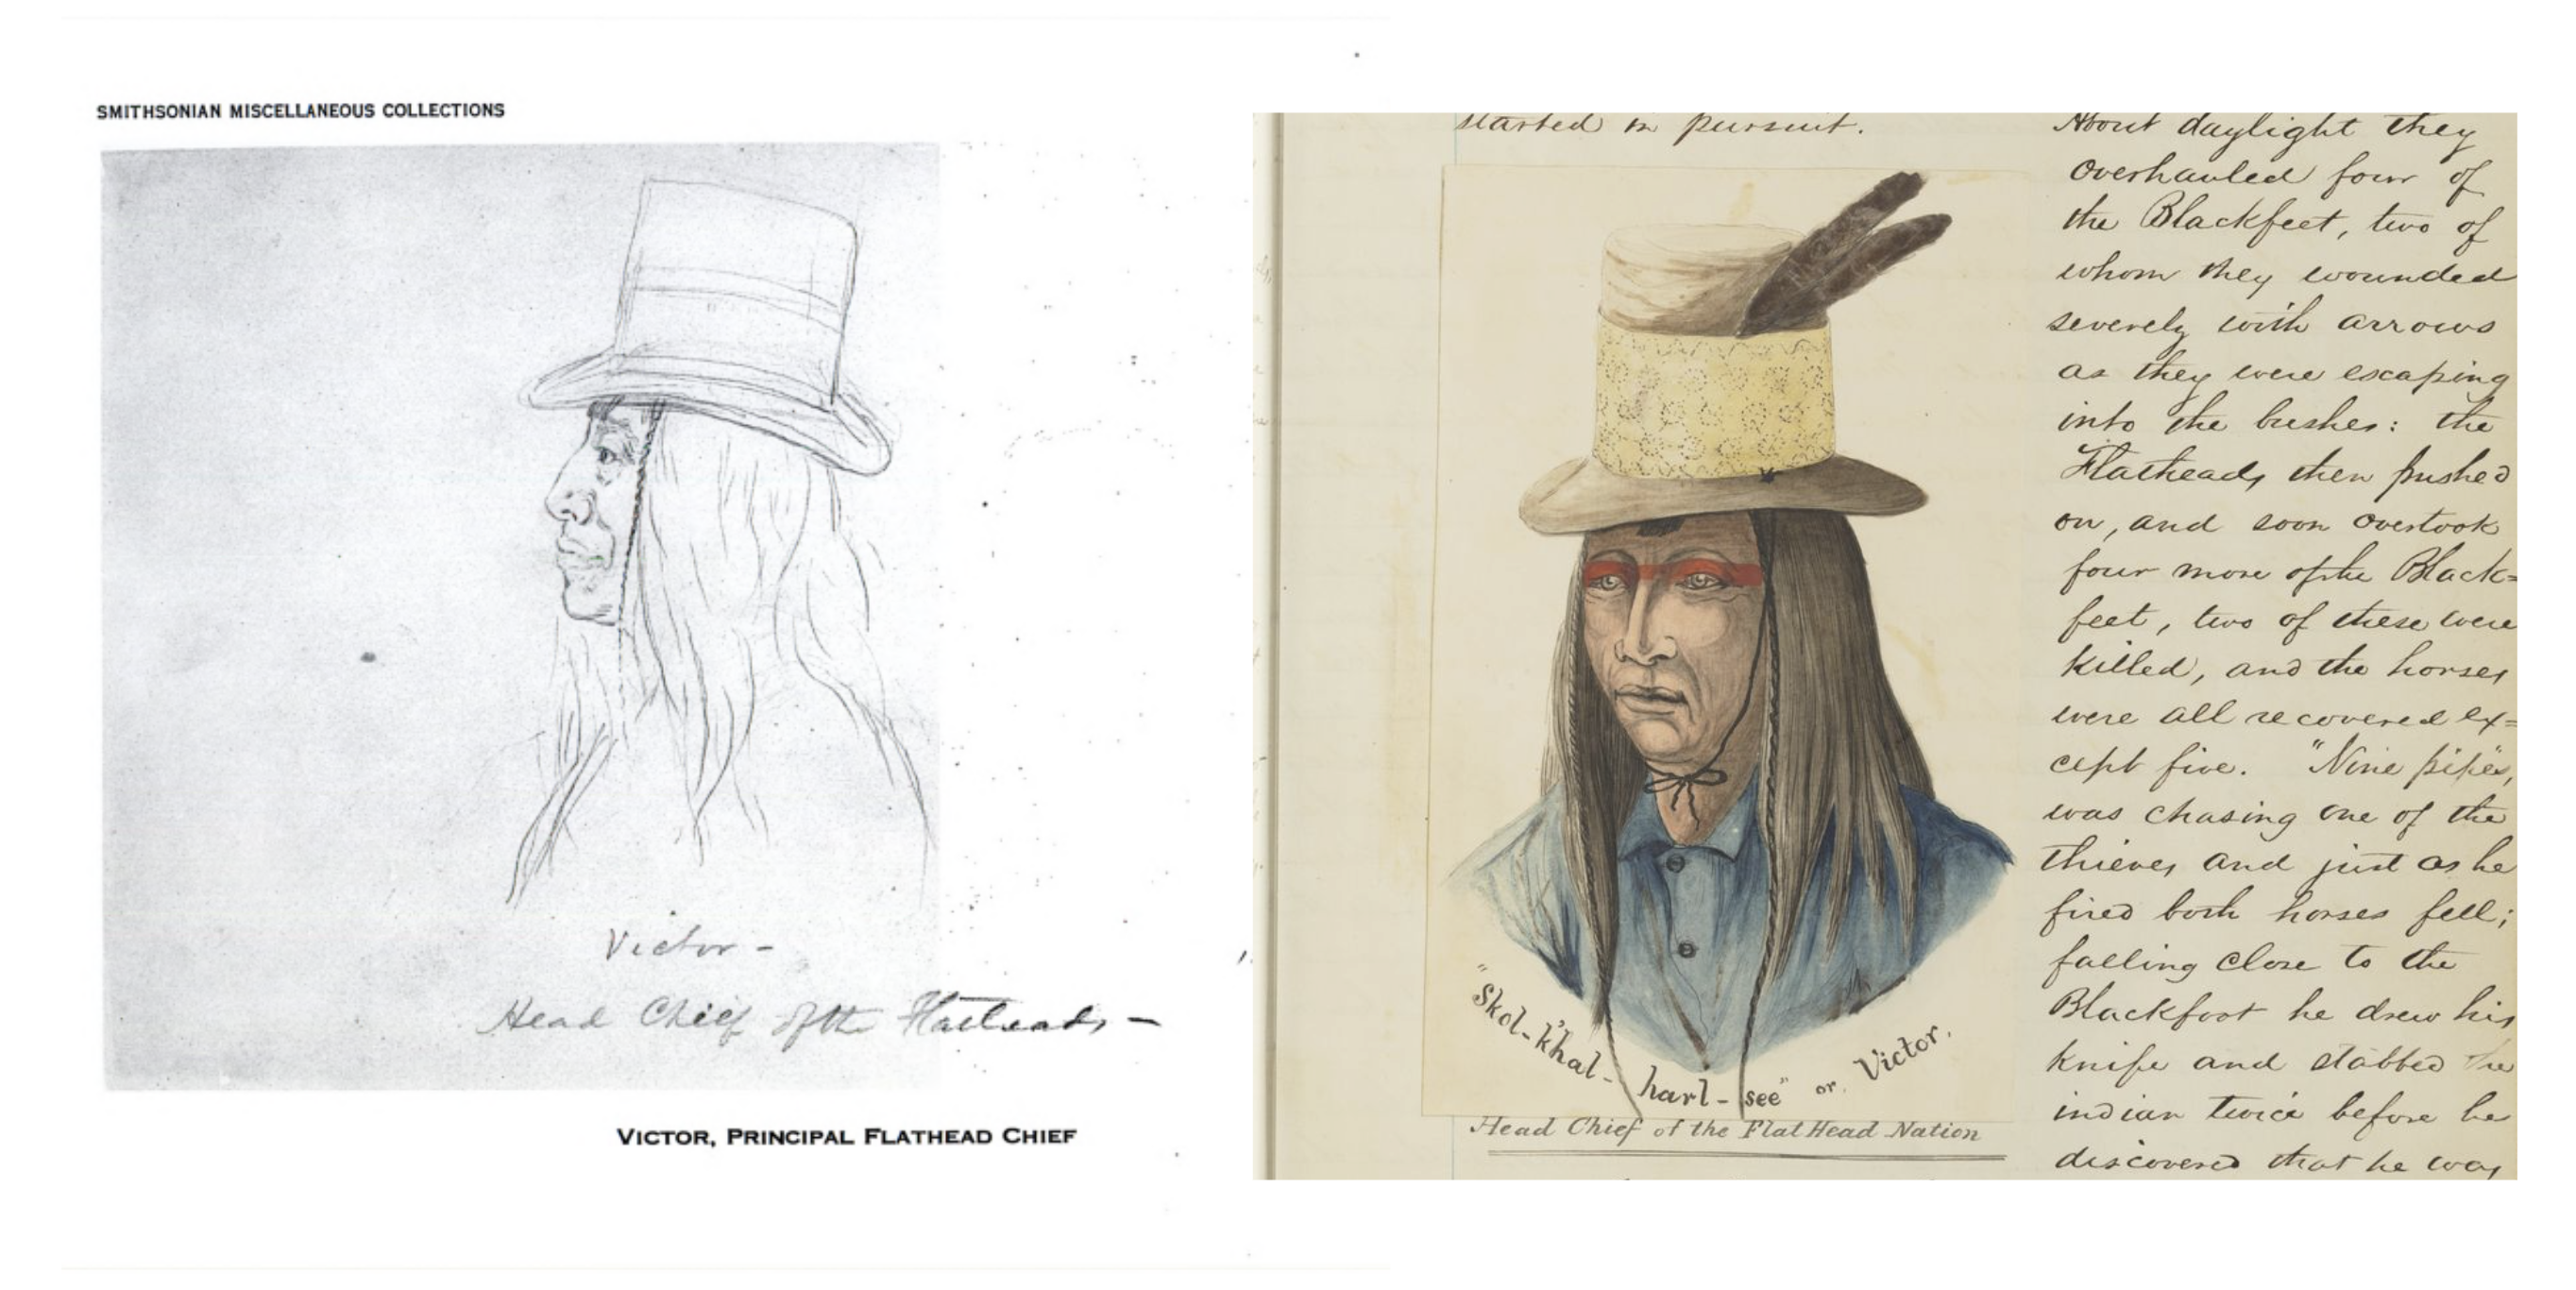 SMITHSONIAN MISCELLANEOUS COLLECTIONS
Victor -
Head Chief of the Flatheads -
VICTOR, PRINCIPAL FLATHEAD CHIEF
started in pursuit.
"Skol-k'hal-harl-see" or Victor.
Head Chief of the Flat Head Nation
About daylight they
overhauled four of
the Blackfeet, two of
whom they wounded
severely with arrows
as they were escaping
into the bushes: the
Flatheads then pushed
on, and soon overtook
four more of the Black=
feet, two of these were
killed, and the horses
were all recovered ex=
cept five. "Nine pipes,
was chasing one of the
thieves and just as he
fired both horses fell;
falling close to the
Blackfoot he drew his
knife and stabbed the
indian twice before he
discovered that he was